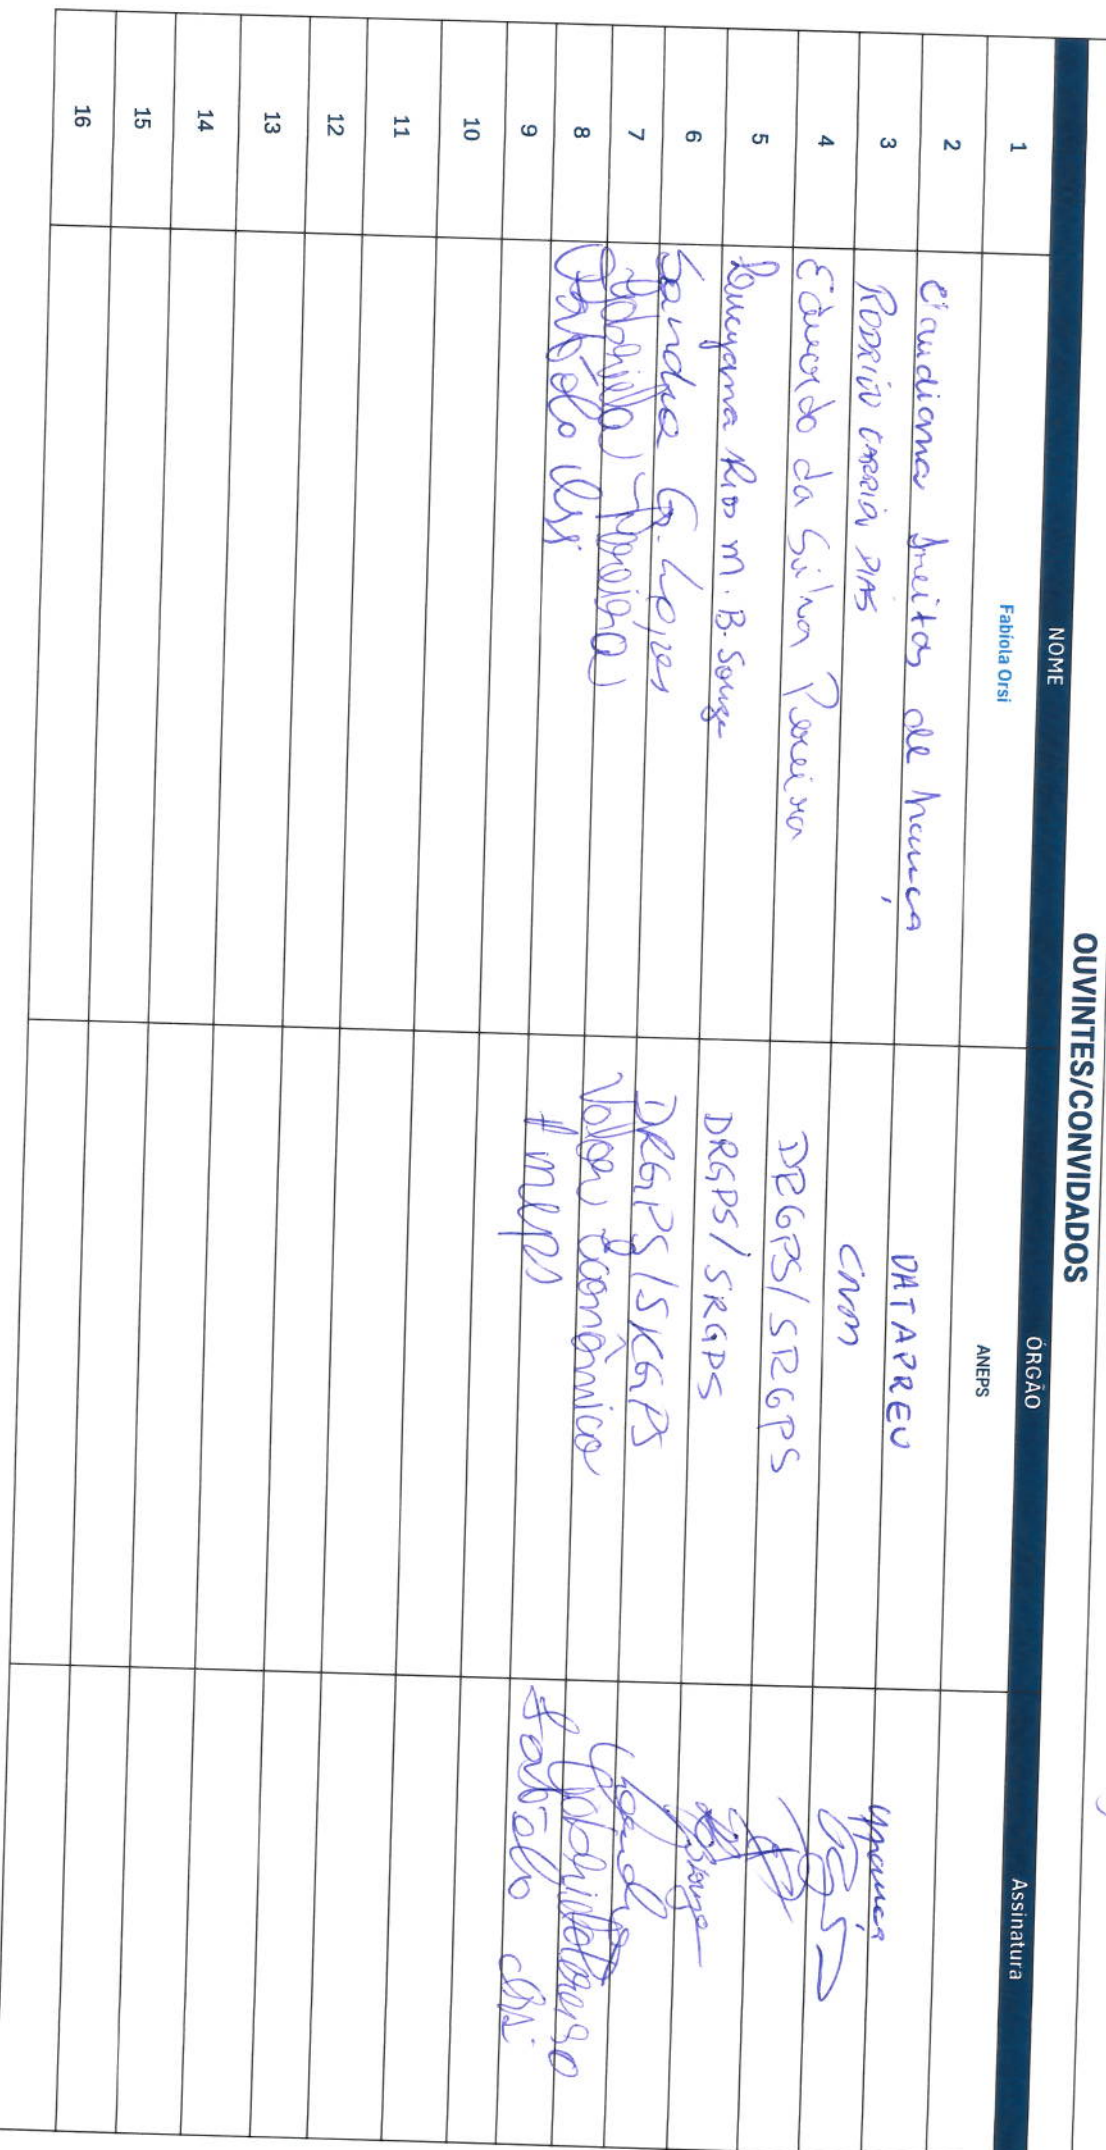 OUVINTES/CONVIDADOS
NOME ÓRGÃO Assinatura
1 Fabíola Orsi ANEPS
2 Claudiana Freitas de França DATAPREV
3 RODRIGO CORREIA DIAS CNM
4 Eduardo da Silva Pereira DRGPS/SRGPS
5 Lucyana Rios M. B. Souza DRGPS/SRGPS Souza
6 Sandra G. Lopes DRGPS/SRGPS Sandra
7 Gabriela Pereira Valor Econômico
8 Fabíola Orsi Aneps Fabíola Orsi
9
10
11
12
13
14
15
16